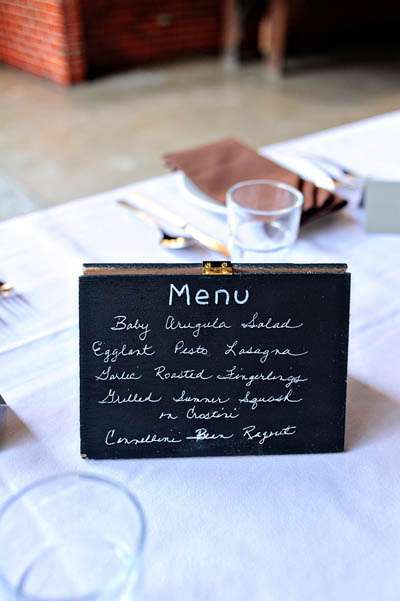 Menu
Baby Arugula Salad
Egglant Pesto Lasagna
Garlic Roasted Fingerlings
Grilled Summer Squash
on Crostini
Cannellini Bean Ragout